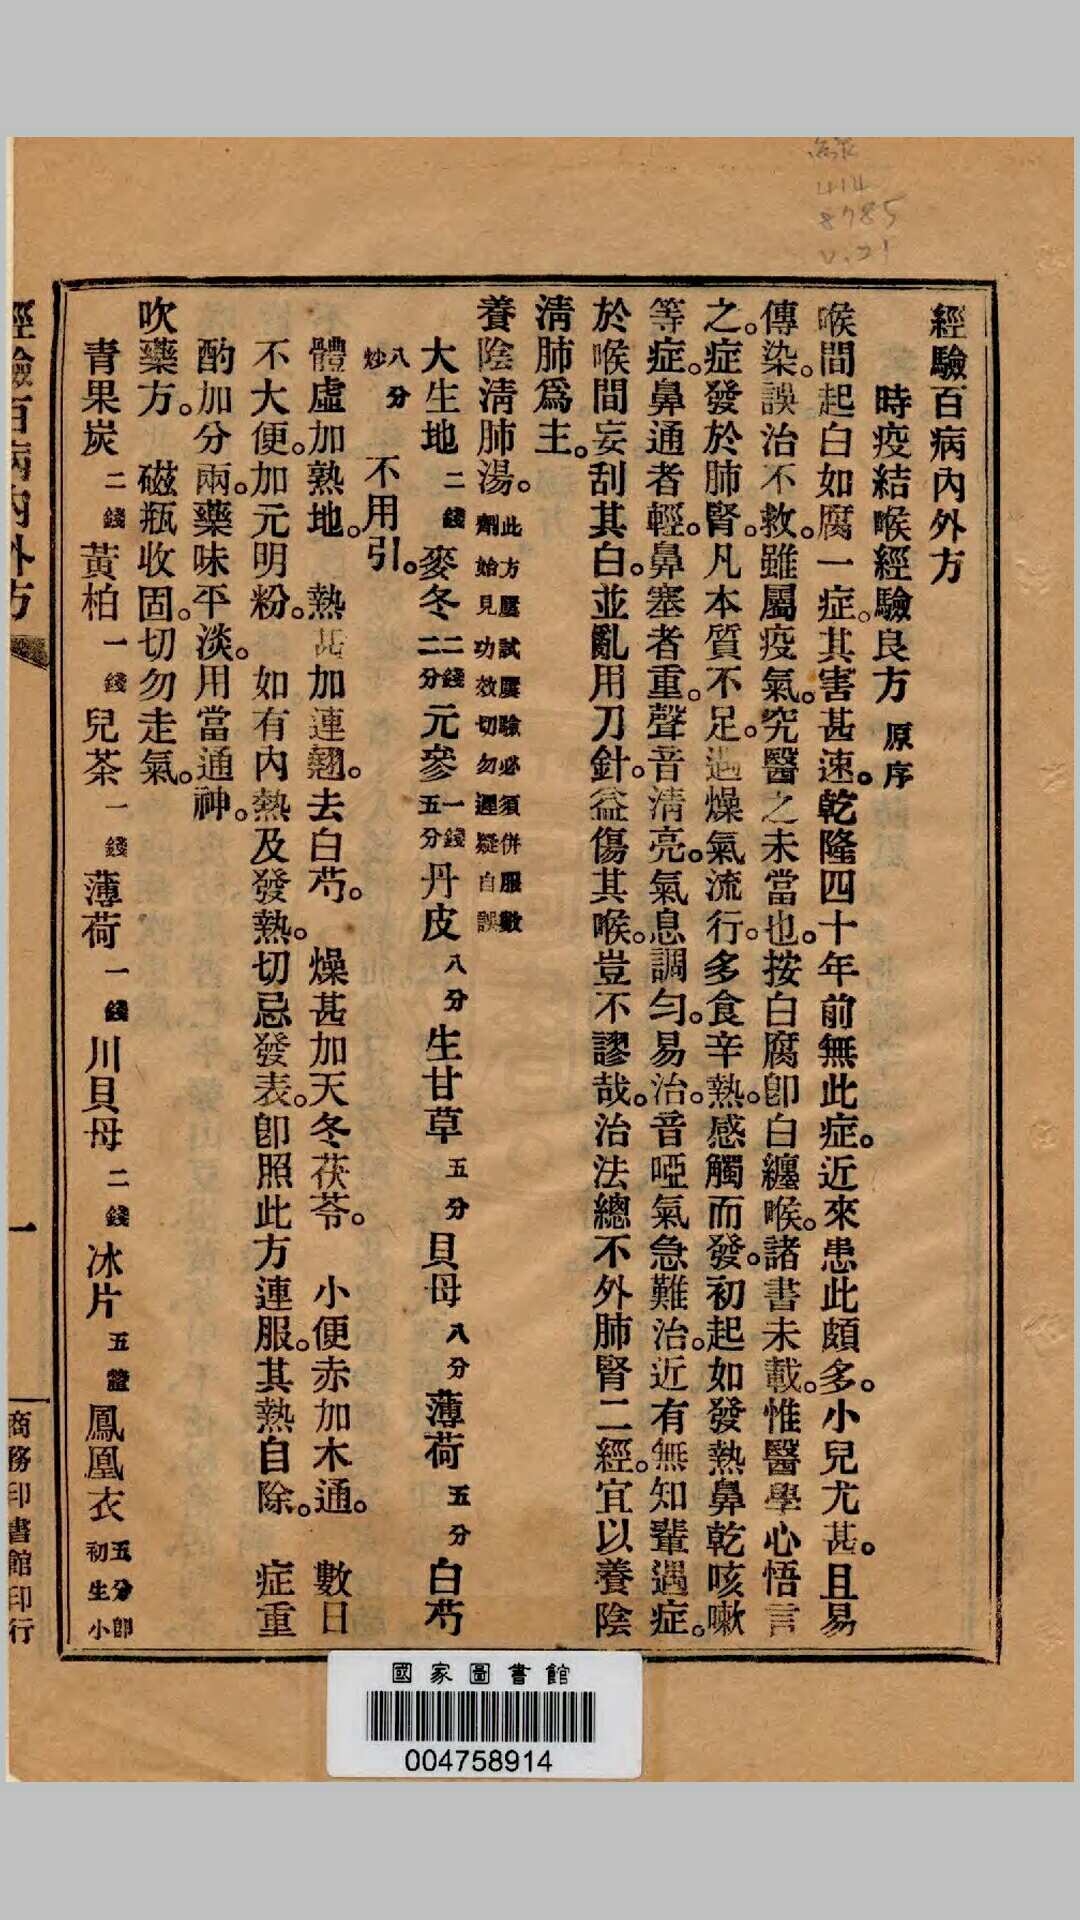 經驗百病內外方
時疫結喉經驗良方 原序
喉間起白如腐一症。其害甚速。乾隆四十年前無此症。近來患此頗多。小兒尤甚。且易
傳染。誤治不救。雖屬疫氣。究醫之未當也。按白腐卽白纏喉。諸書未載。惟醫學心悟言
之。症發於肺腎。凡本質不足。遇燥氣流行。多食辛熱。感觸而發。初起如發熱鼻乾咳嗽
等症。鼻通者輕。鼻塞者重。聲音清亮。氣息調勻。易治。音啞氣急難治。近有無知輩遇症。
於喉間妄刮其白。並亂用刀針。益傷其喉。豈不謬哉。治法總不外肺腎二經。宜以養陰
清肺爲主。
養陰清肺湯。此方屢試屢驗必須併服數劑始見功效切勿遲疑自誤
大生地二錢 麥冬一錢二分 元參一錢五分 丹皮八分 生甘草五分 貝母八分 薄荷五分 白芍
八分炒 不用引。
體虛加熟地。 熱甚加連翹。去白芍。 燥甚加天冬茯苓。 小便赤加木通。 數日
不大便。加元明粉。 如有內熱及發熱。切忌發表。卽照此方連服。其熱自除。 症重
酌加分兩。藥味平淡。用當通神。
吹藥方。 磁瓶收固。切勿走氣。
青果炭二錢 黃柏一錢 兒茶一錢 薄荷一錢 川貝母二錢 冰片五釐 鳳凰衣五分卽初生小
經驗百病內外方
一
商務印書館印行
414
8785
v.21
國家圖書館
004758914